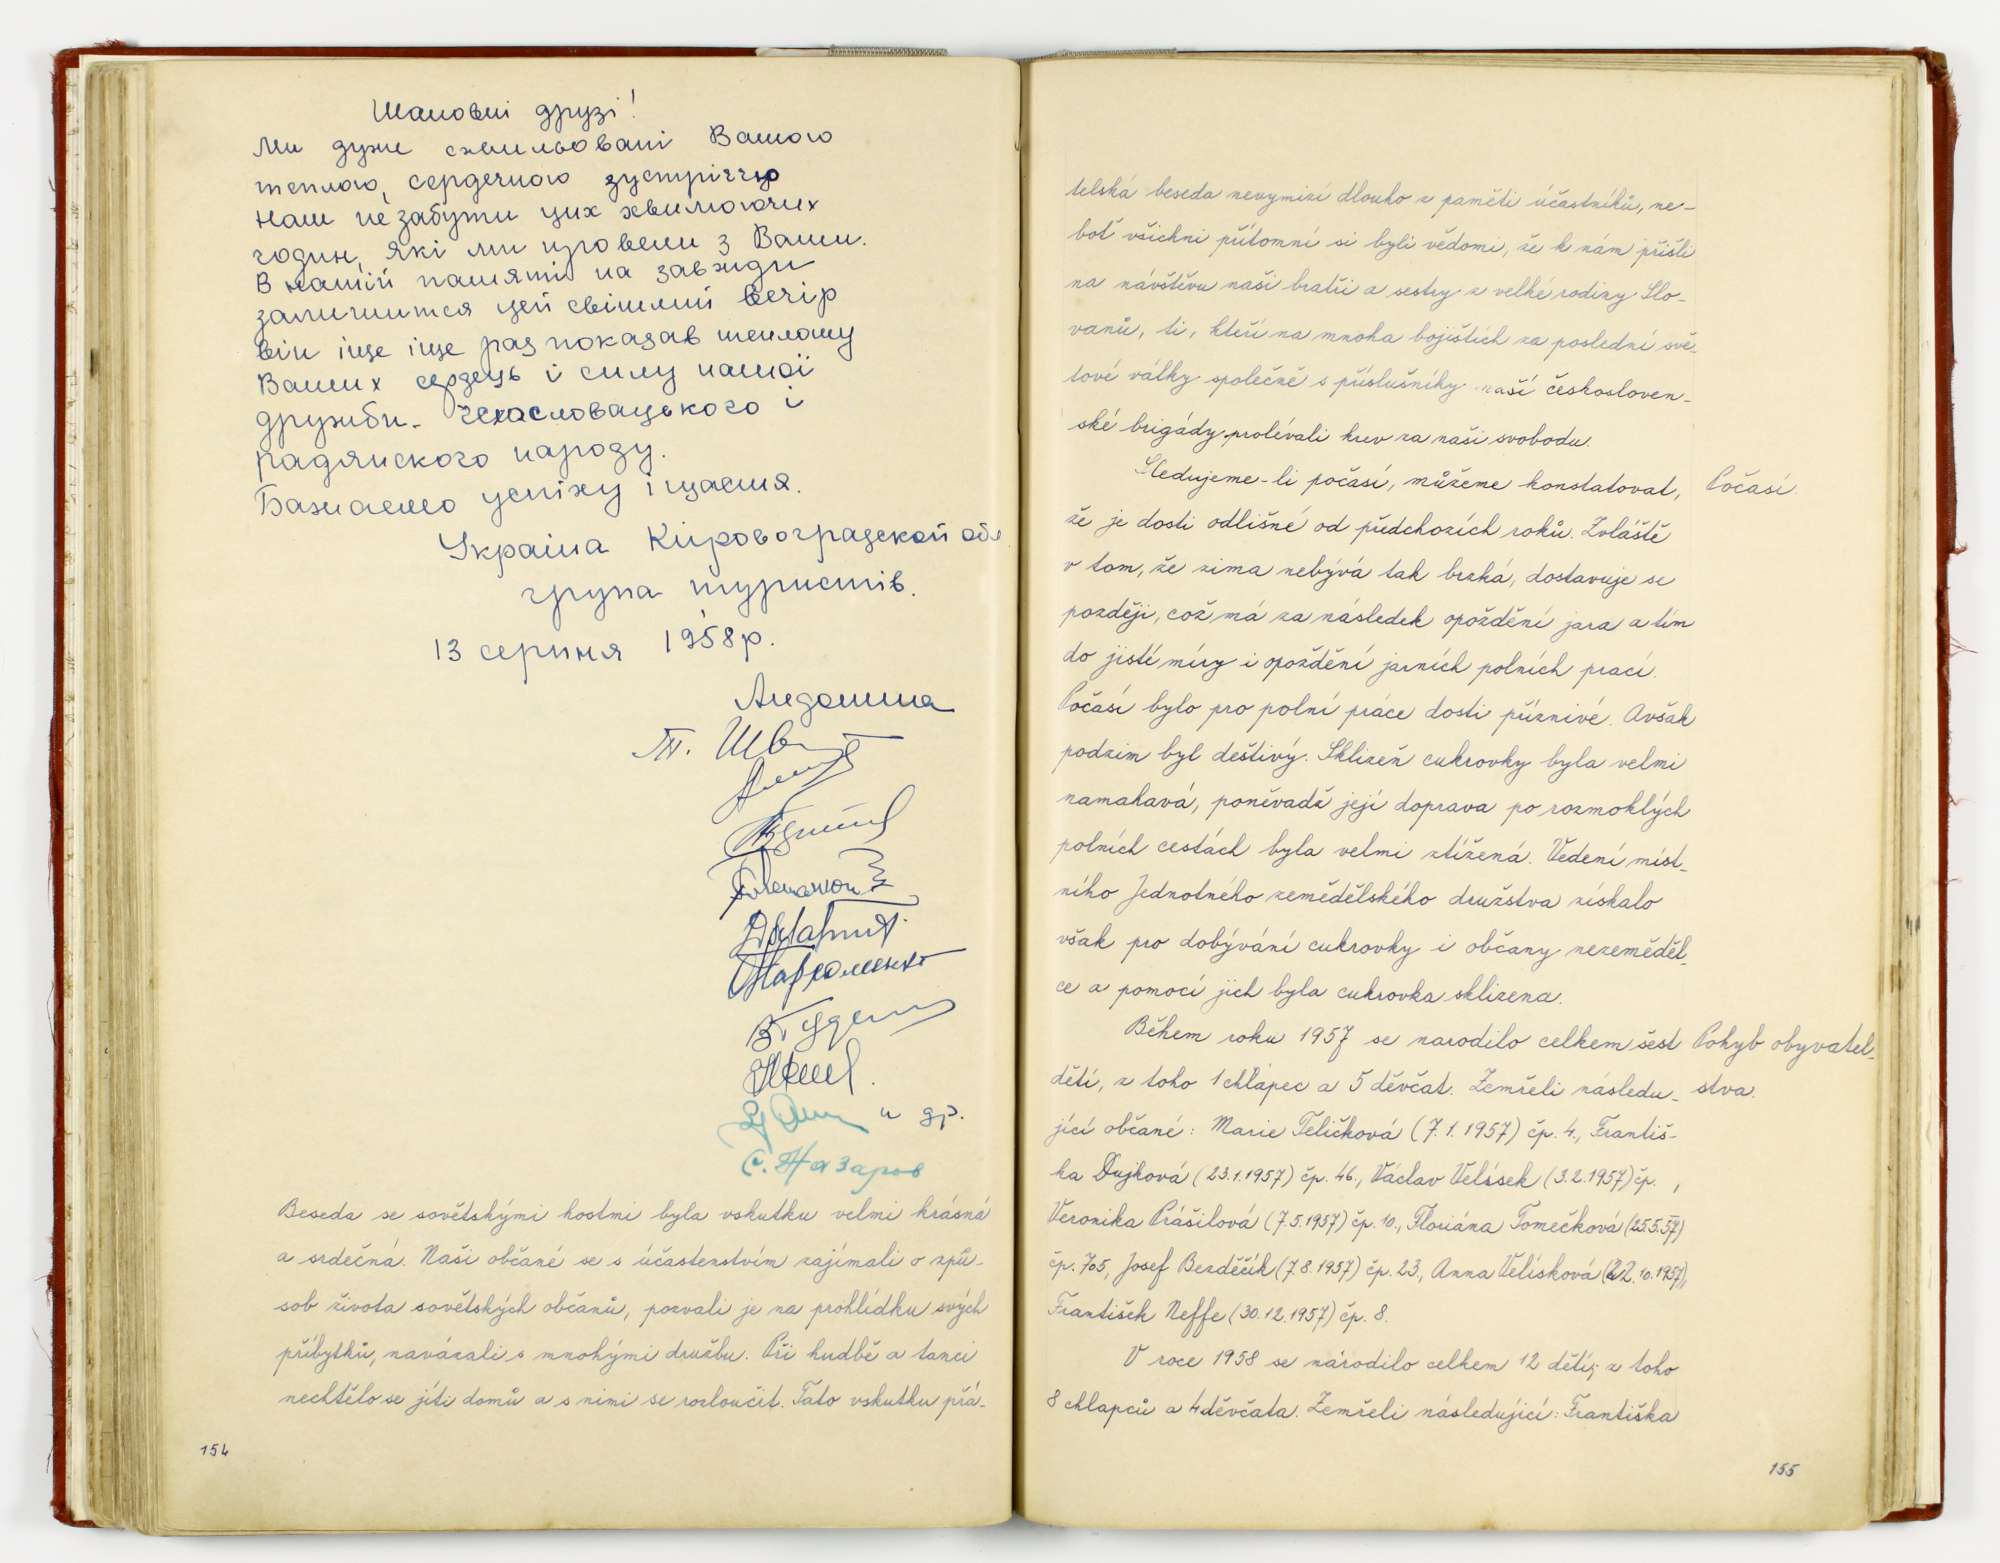 Шановні друзі!
Ми дуже схвильовані Вашою
теплою, сердечною зустріччю
нам не забути цих хвилюючих
годин, які ми провели з Вами.
В нашій памяті на завжди
залишится цей світлий вечір
він іще іще раз показав теплоту
Ваших сердець і силу нашої
дружби - чехословацького і
радянского народу.
Бажаємо успіху і щастя.
Україна Кировоградской обл
група туристів.
13 серпня 1958р.
Т.
и др.
С. Назаров
Beseda se sovětskými hostmi byla vskutku velmi krásná
a srdečná. Naši občané se s účastenstvím zajímali o způ-
sob života sovětských občanů, pozvali je na prohlídku svých
příbytků, navázali s mnohými družbu. Při hudbě a tanci
nechtělo se jíti domů a s nimi se rozloučit. Tato vskutku přá-
154
telská beseda nevymizí dlouho z paměti účastníků, ne-
boť všichni přítomní si byli vědomi, že k nám přišli
na návštěvu naši bratři a sestry z velké rodiny Slo-
vanů, ti, kteří na mnoha bojištích za poslední svě-
tové války společně s příslušníky naší českosloven-
ské brigády prolévali krev za naši svobodu.
Sledujeme-li počasí, můžeme konstatovat, Počasí.
že je dosti odlišné od předchozích roků. Zvláště
v tom, že zima nebývá tak brzká, dostavuje se
později, což má za následek opoždění jara a tím
do jisté míry i opoždění jarních polních prací.
Počasí bylo pro polní práce dosti příznivé. Avšak
podzim byl deštivý. Sklizeň cukrovky byla velmi
namahavá, poněvadž její doprava po rozmoklých
polních cestách byla velmi ztížená. Vedení míst-
ního Jednotného zemědělského družstva získalo
však pro dobývání cukrovky i občany nezeměděl-
ce a pomocí jich byla cukrovka sklizena.
Během roku 1957 se narodilo celkem šest Pohyb obyvatel-
dětí, z toho 1 chlapec a 5 děvčat. Zemřeli následu- stva.
jící občané: Marie Teličková (7.1.1957) čp. 4., Františ-
ka Dujková (23.1.1957) čp. 46., Václav Velísek (3.2.1957) čp. ,
Veronika Prášilová (7.5.1957) čp. 10., Floriána Tomečková (25.5.57)
čp. 705, Josef Bezděčík (7.8.1957) čp. 23., Anna Velísková (22.10.1957),
František Neffe (30.12.1957) čp. 8.
V roce 1958 se národilo celkem 12 dětí, z toho
8 chlapců a 4 děvčata. Zemřeli následující: Františka
155